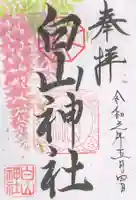 奉拝
令和二年五月四日
白山神社
白山
神社